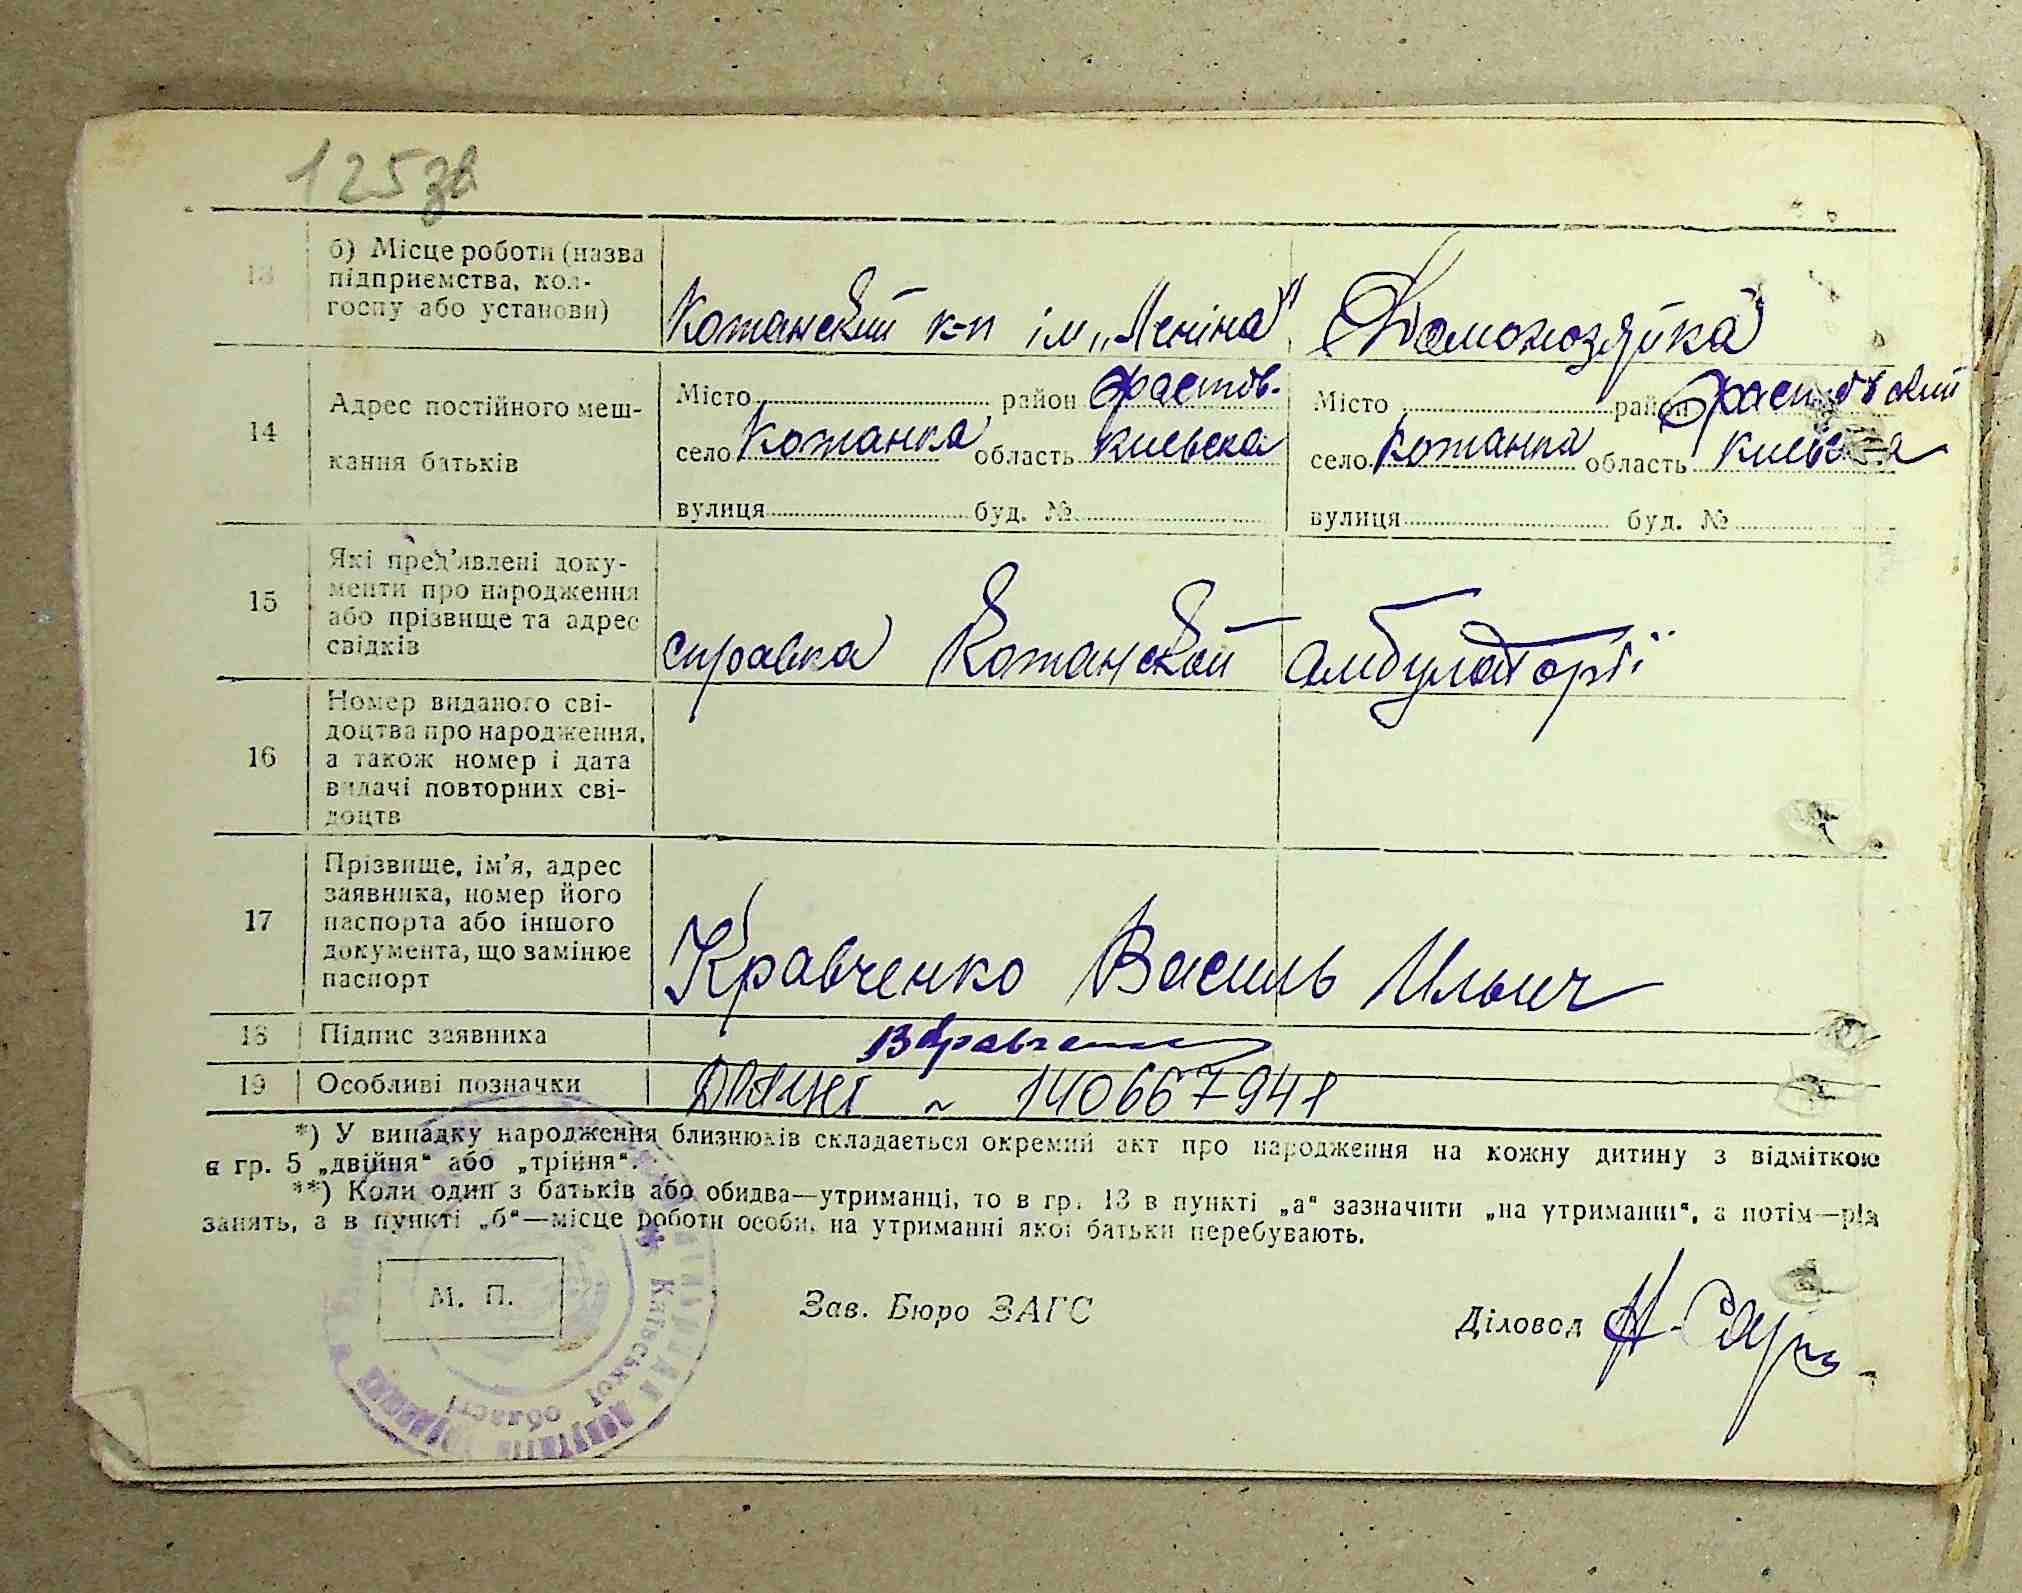 125 зв
13 б) Місце роботи (назва
підприємства, кол-
госпу або установи)
Кожанский к-п ім „Леніна" Домохозяйка
14 Адрес постійного меш-
кання батьків
Місто район Фастов. Місто район Фастовский
село Кожанка область Киевска село Кожанка область Киевска
вулиця буд. № вулиця буд. №
15 Які пред'явлені доку-
менти про народження
або прізвище та адрес
свідків
справка Кожанской амбулаторії
16 Номер виданого сві-
доцтва про народження,
а також номер і дата
видачі повторних сві-
доцтв
17 Прізвище, ім'я, адрес
заявника, номер його
паспорта або іншого
документа, що замінює
паспорт
Кравченко Василь Ильич
18 Підпис заявника ВКравченко
19 Особливі позначки ~ 1406679481
*) У випадку народження близнюків складається окремий акт про народження на кожну дитину з відміткою
в гр. 5 „двійня" або „трійня".
**) Коли один з батьків або обидва—утриманці, то в гр. 13 в пункті „а" зазначити „на утриманні", а потім—рід
занять, а в пункті „б"—місце роботи особи, на утриманні якої батьки перебувають.
М. П. Зав. Бюро ЗАГС Діловод
Київської області